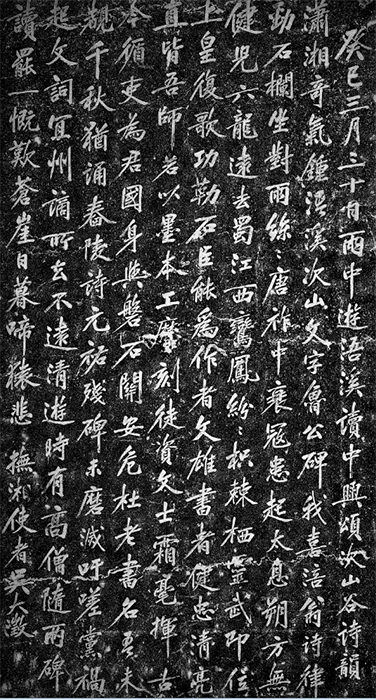 癸巳三月三十日雨中遊浯溪讀中興頌次山谷詩韻
瀟湘奇氣鍾浯溪次山文字魯公碑我喜涪翁詩律
勁石欄坐對雨絲〻唐祚中衰寇患起太息朔方無
健兒六龍遠去蜀江西鸞鳳紛〻枳棘栖靈武即位
上皇復歌功勒石臣能爲作者文雄書者健忠清亮
直皆吾師若以墨本工摩刻徒資文士霜毫揮古
今循吏為君國身與磐石關安危杜老書名吾未
覩千秋猶誦舂陵詩元祐殘碑未磨滅吁嗟黨禍
起文詞宜州謫所去不遠清遊時有高僧隨兩碑
讀罷一慨歎蒼崖日暮啼猿悲 撫湘使者吳大澂